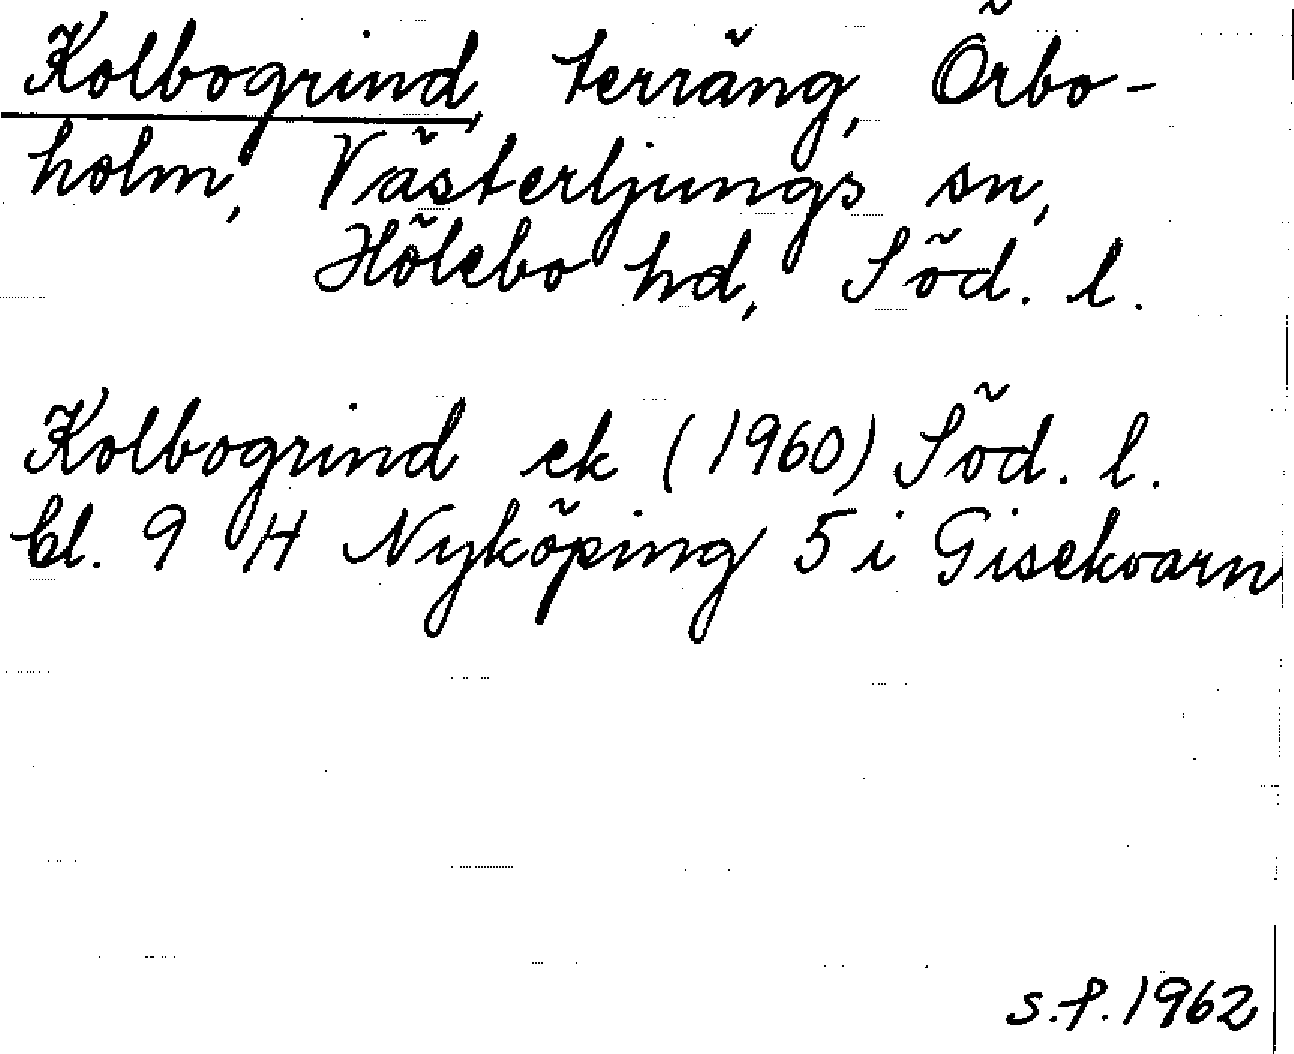 Kolbogrind, terräng, Örbo-
holm, Västerljungs sn,
Hölebo hd, Söd. l.
Kolbogrind ek (1960) Söd. l.
Bl. 9 H Nyköping 5 i Gisekvarn
S.F. 1962